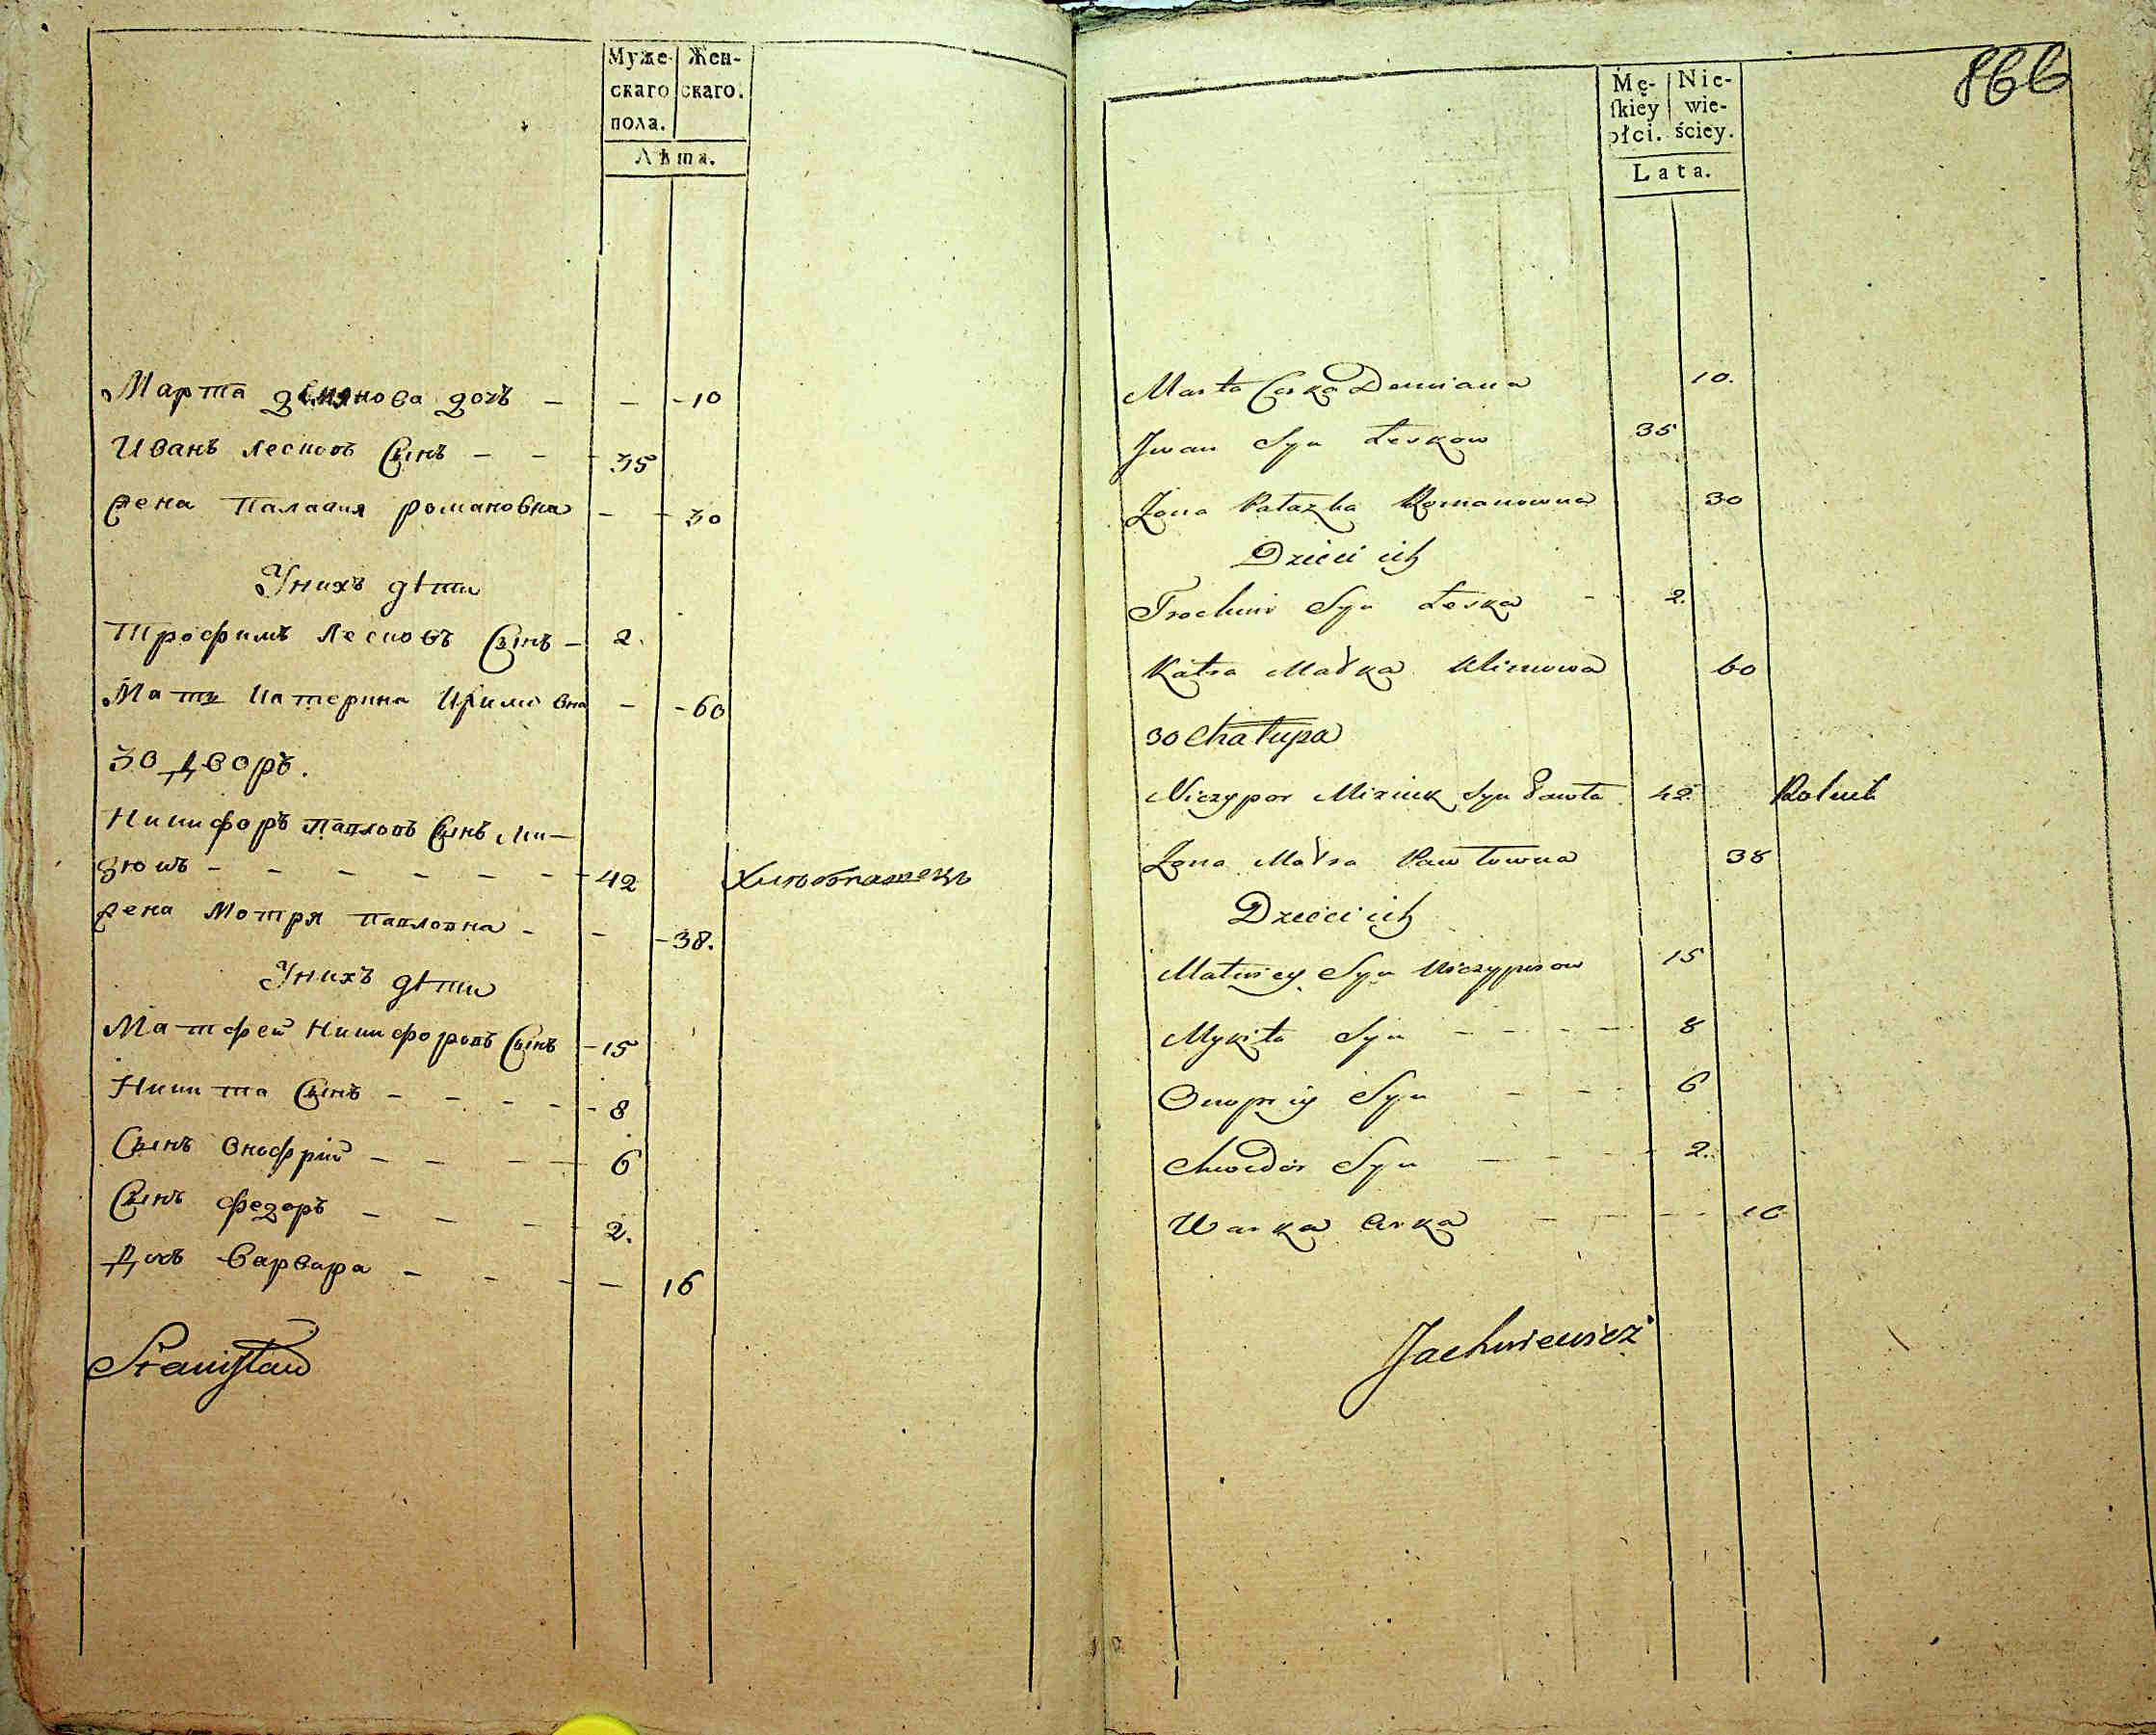 Муже- Жен-
скаго скаго.
пола.
Лѣта.
Марта Демянова дочь — — - 10
Иванъ Лесковъ Сынъ — — - 35
Жена Палагия Романовна — - 30
У нихъ дѣти
Трофимъ Лесковъ Сынъ — 2.
Мать Катерина Климовна — - 60
30 Дворъ.
Никифоръ Павловъ Сынъ Ми-
зюкъ — — — — — — - 42 Хлѣбопашецъ
Жена Мотря Павловна — — - 38.
У нихъ дѣти
Матфей Никифоровъ Сынъ - 15
Никита Сынъ — — — - 8
Сынъ Онофрій — — — 6
Сынъ Федоръ — — — 2.
Дочь Варвара — — — — 16
Stanisław
866
Mę- Nie-
ſkiey wie-
płci. ściey.
Lata.
Marta Corka Demiana 10.
Jwan Syn Leskow 35
Zona Pałazka Romanowna 30
Dzieci ich
Trochim Syn Leska - 2.
Katra Matka Klimowa 60
30 Chałupa
Niczypor Miziuk Syn Pawła 42. Rolnik
Zona Motra Pawłowna 38
Dzieci ich
Matwiey Syn Niczyporow 15
Mykita Syn — — — — 8
Onopriy Syn — — 6
Chwedor Syn — — — 2.
Warka Corka — — — 16
Jachniewicz